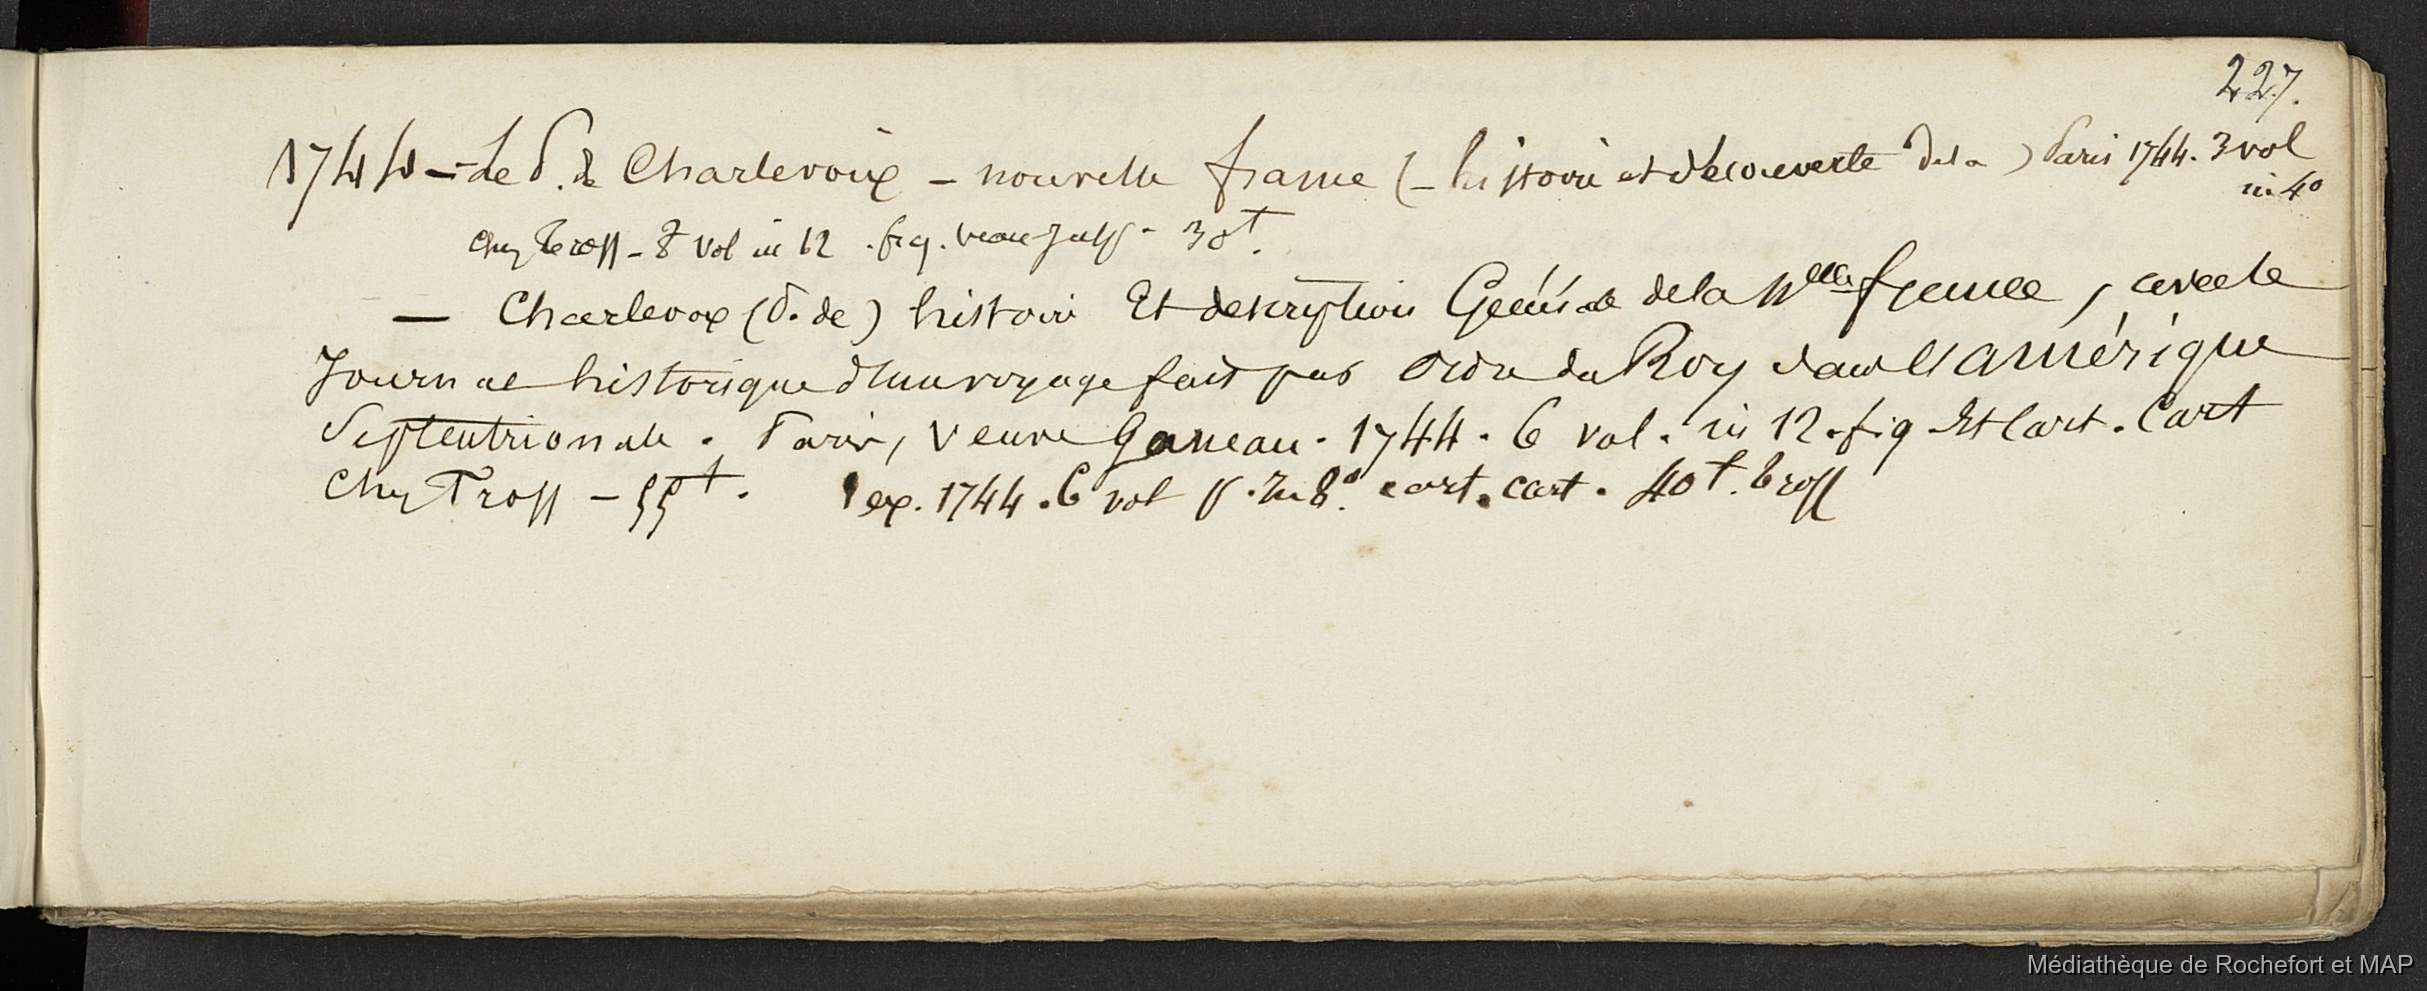 227.
1744 – Le P. de Charlevoix – nouvelle france (– histoire et découverte de la) Paris 1744. 3 vol
in 4º
chez tross – 8 vol in 12 . fig. veau 30f.
— Charlevox (P. de) histoire Et description Générale de la Nlle france, avec le
Journal historique d'un voyage fait par ordre du Roy dans l'amérique
Septentrionale . Paris, Veuve Ganeau . 1744 . 6 vol . in 12 . fig Et Cart . Cart
Chez Tross – 55f. 1 ex. 1744 . 6 vol . In 8º. cart . cart . 40f. tross
Médiathèque de Rochefort et MAP